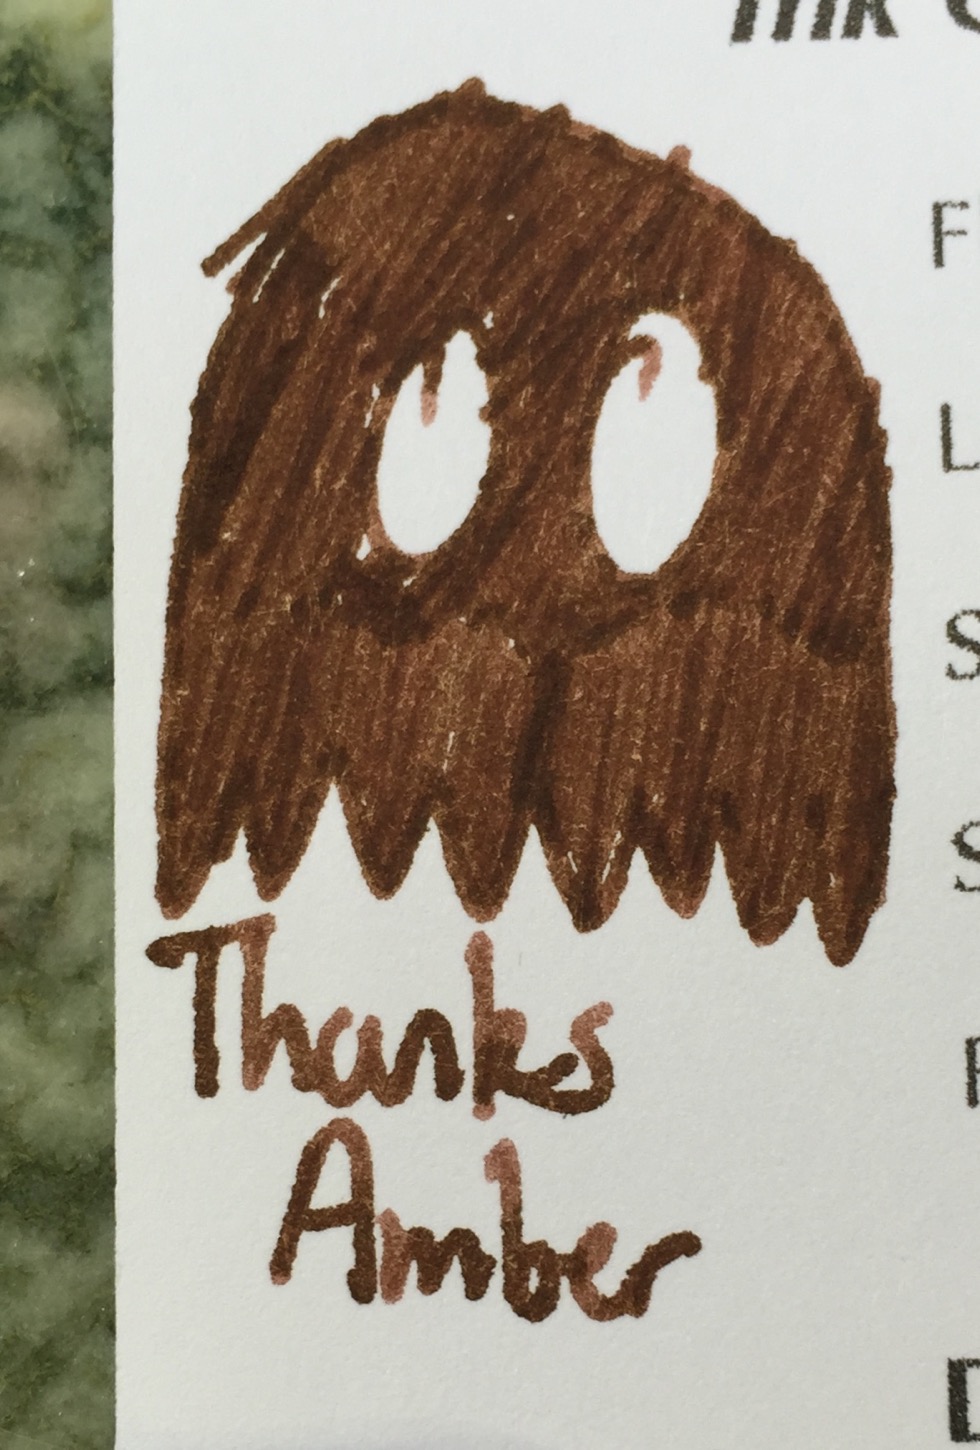 Ink
F
L
S
S
Thanks
Amber